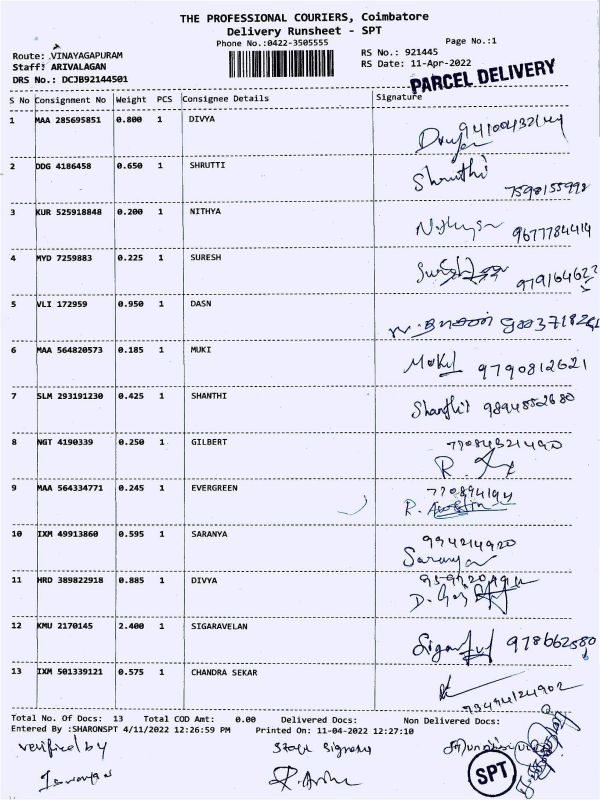 THE PROFESSIONAL COURIERS, Coimbatore
Delivery Runsheet - SPT
Phone No.:0422-3505555 Page No.:1
Route: VINAYAGAPURAM RS No.: 921445
Staff: ARIVALAGAN RS Date: 11-Apr-2022
DRS No.: DCJB92144501 PARCEL DELIVERY
S No Consignment No Weight PCS Consignee Details Signature
1 MAA 285695851 0.800 1 DIVYA
2 DDG 4186458 0.650 1 SHRUTTI Shruthi
7598155998
3 KUR 525918848 0.200 1 NITHYA
9677784414
4 MYD 7259883 0.225 1 SURESH
5 VLI 172959 0.950 1 DASN
6 MAA 564820573 0.185 1 MUKI 9790812621
7 SLM 293191230 0.425 1 SHANTHI Shanthi 9894552680
8 NGT 4190339 0.250 1 GILBERT 77084321490
9 MAA 564334771 0.245 1 EVERGREEN
10 IXM 49913860 0.595 1 SARANYA 994214920
Saranya
11 HRD 389822918 0.885 1 DIVYA
12 KMU 2170145 2.400 1 SIGARAVELAN 978662580
13 IXM 501339121 0.575 1 CHANDRA SEKAR
93494124902
Total No. Of Docs: 13 Total COD Amt: 0.00 Delivered Docs: Non Delivered Docs:
Entered By :SHARONSPT 4/11/2022 12:26:59 PM Printed On: 11-04-2022 12:27:10
verified by
SPT